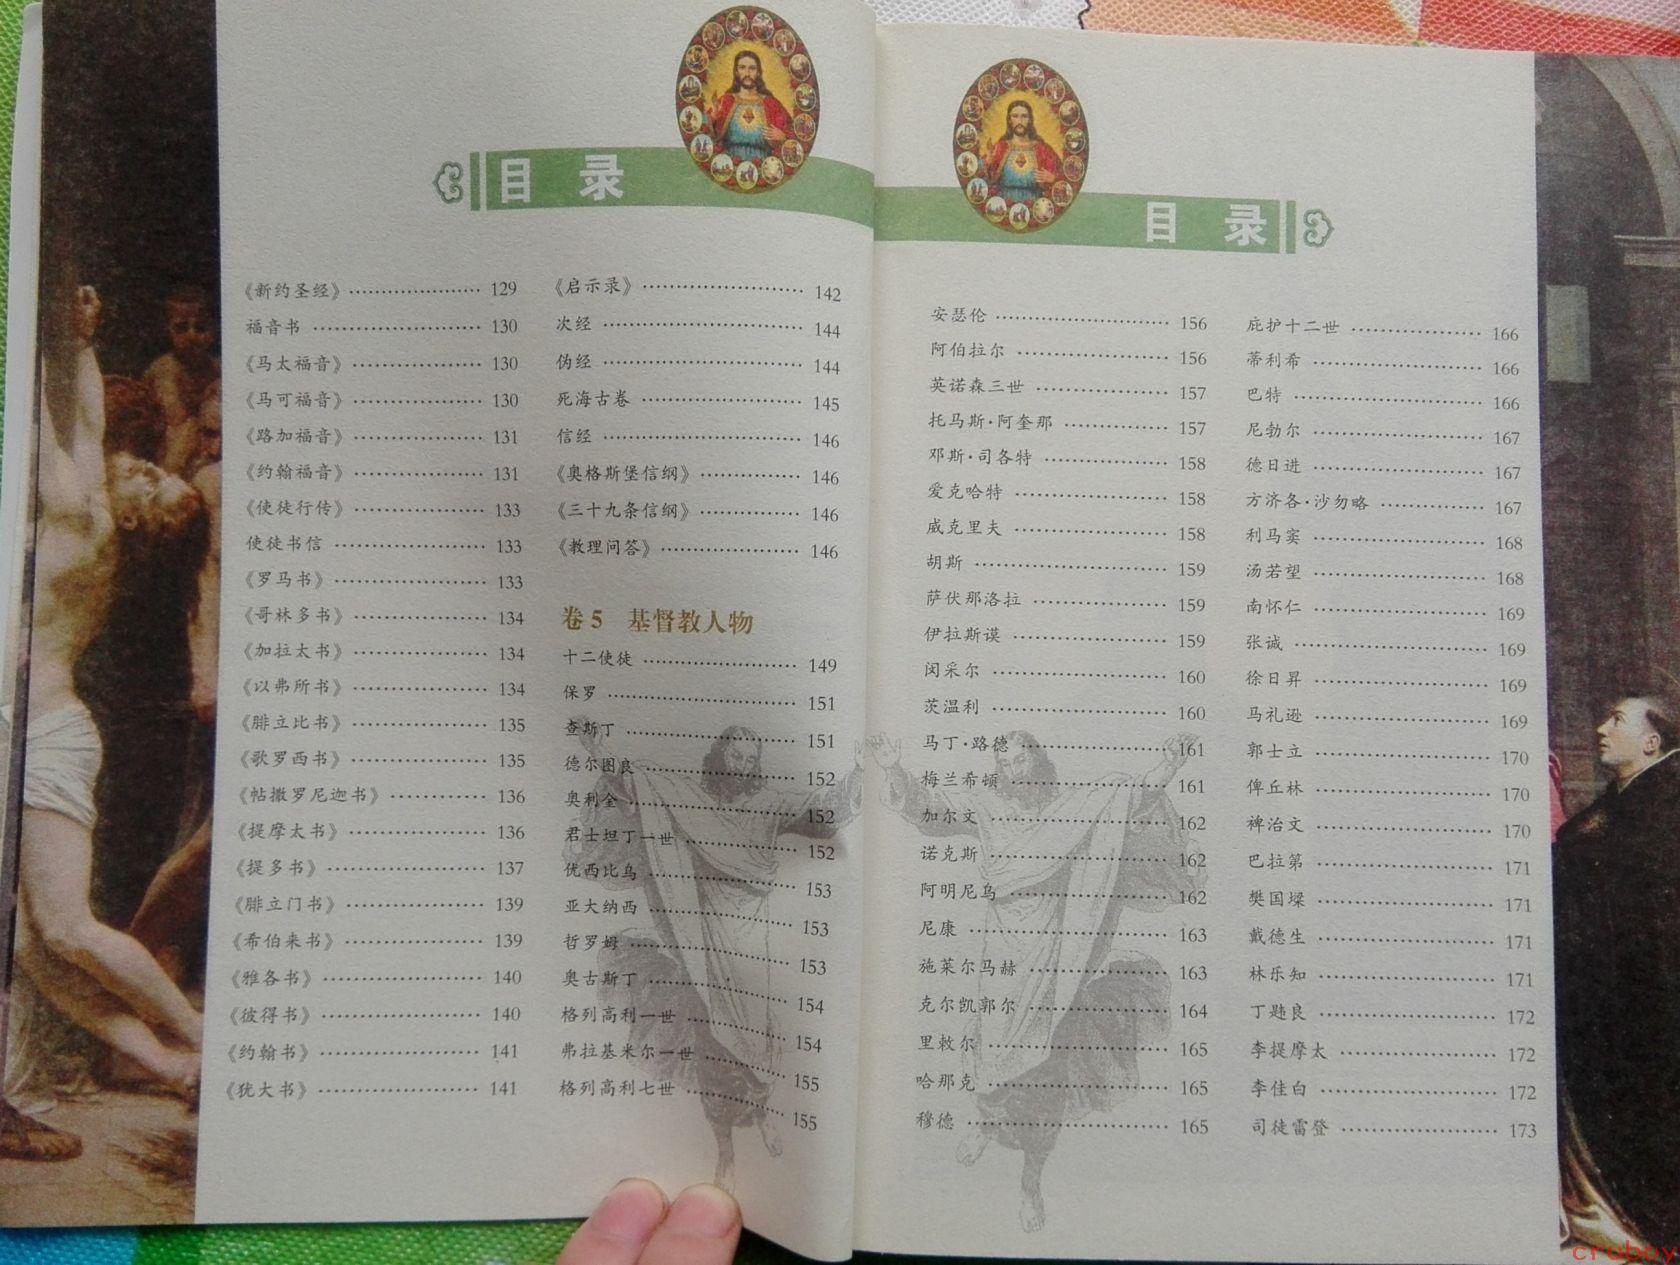 目 录
《新约圣经》 129
福音书 130
《马太福音》 130
《马可福音》 130
《路加福音》 131
《约翰福音》 131
《使徒行传》 133
使徒书信 133
《罗马书》 133
《哥林多书》 134
《加拉太书》 134
《以弗所书》 134
《腓立比书》 135
《歌罗西书》 135
《帖撒罗尼迦书》 136
《提摩太书》 136
《提多书》 137
《腓立门书》 139
《希伯来书》 139
《雅各书》 140
《彼得书》 140
《约翰书》 141
《犹大书》 141
《启示录》 142
次经 144
伪经 144
死海古卷 145
信经 146
《奥格斯堡信纲》 146
《三十九条信纲》 146
《教理问答》 146
卷 5 基督教人物
十二使徒 149
保罗 151
查斯丁 151
德尔图良 152
奥利金 152
君士坦丁一世 152
优西比乌 153
亚大纳西 153
哲罗姆 153
奥古斯丁 154
格列高利一世 154
弗拉基米尔一世 155
格列高利七世 155
目 录
安瑟伦 156
阿伯拉尔 156
英诺森三世 157
托马斯·阿奎那 157
邓斯·司各特 158
爱克哈特 158
威克里夫 158
胡斯 159
萨伏那洛拉 159
伊拉斯谟 159
闵采尔 160
茨温利 160
马丁·路德 161
梅兰希顿 161
加尔文 162
诺克斯 162
阿明尼乌 162
尼康 163
施莱尔马赫 163
克尔凯郭尔 164
里敕尔 165
哈那克 165
穆德 165
庇护十二世 166
蒂利希 166
巴特 166
尼勃尔 167
德日进 167
方济各·沙勿略 167
利马窦 168
汤若望 168
南怀仁 169
张诚 169
徐日昇 169
马礼逊 169
郭士立 170
俾丘林 170
裨治文 170
巴拉第 171
樊国墚 171
戴德生 171
林乐知 171
丁韪良 172
李提摩太 172
李佳白 172
司徒雷登 173
cruboy